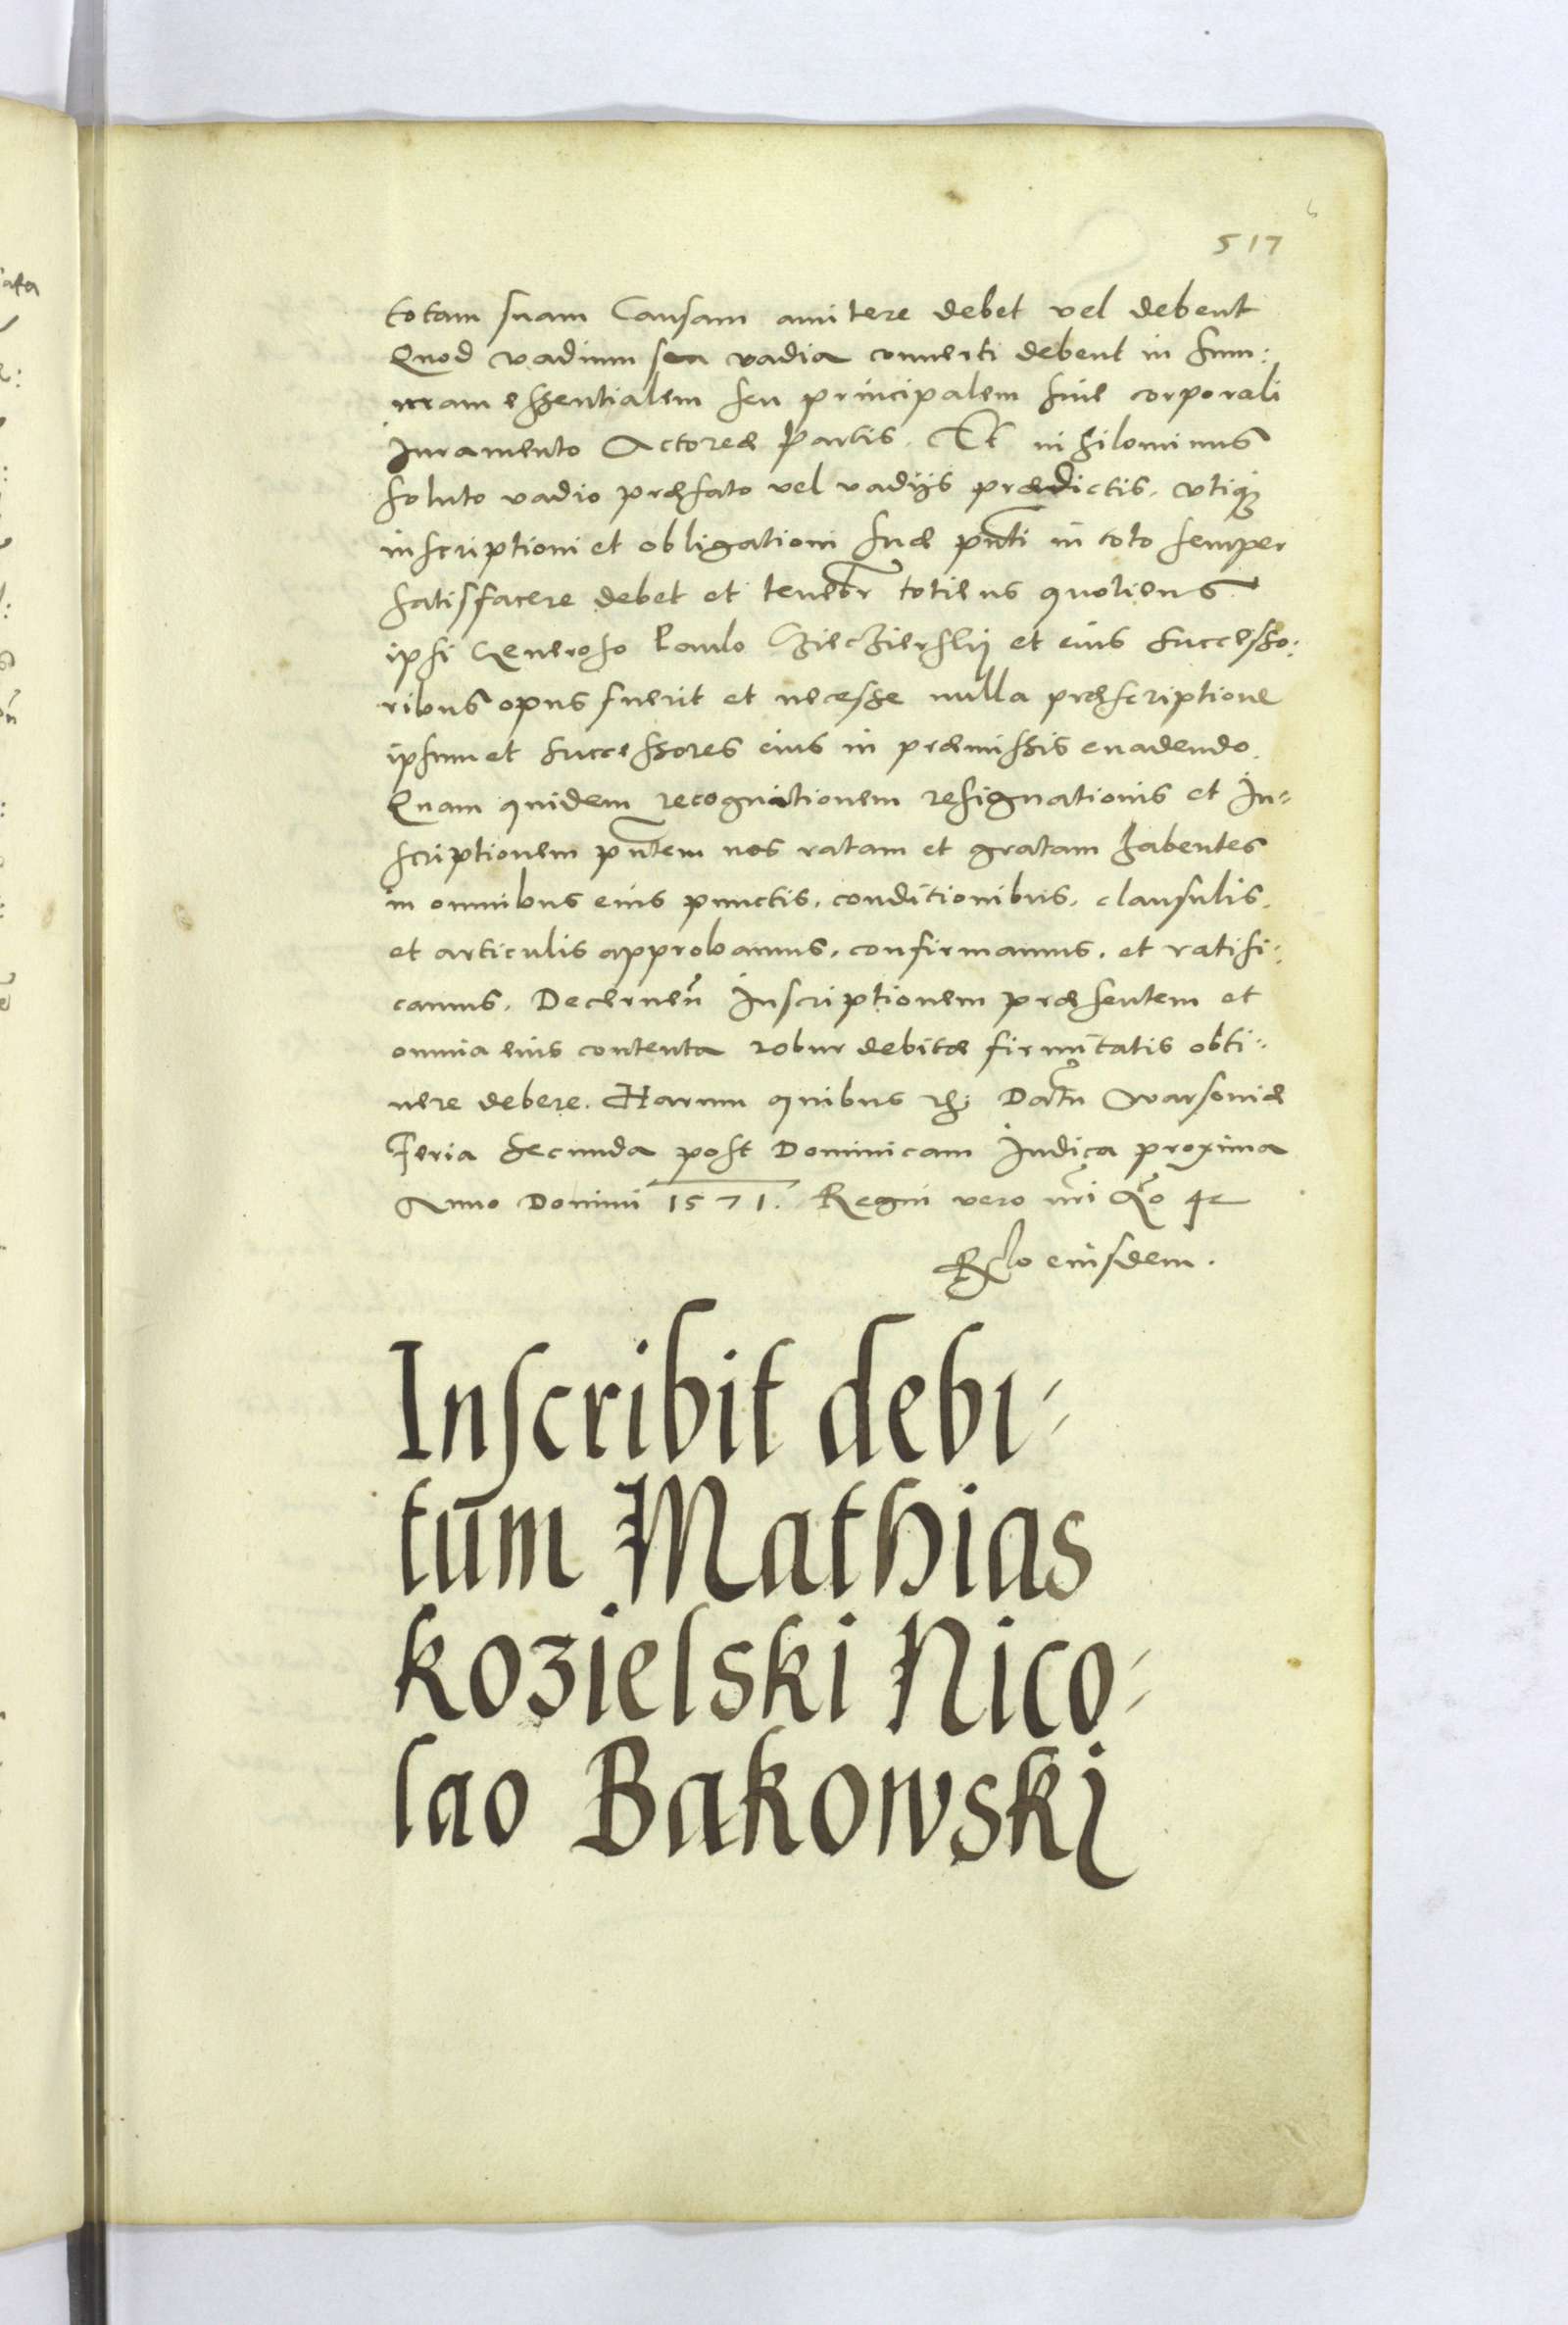 517
totam suam Causam amittere debet vel debent
Quod vadium seu vadia conuerti debent in sum:
mam essentialem seu principalem sine corporali
Juramento Actoreæ Partis. Et nihilominus
soluto vadio præfato vel vadijs prædictis. vtiqз
inscriptioni et obligationi suæ pn̄ti in toto semper
satisfacere debet et tenebr̄ totiens quotiens
ipsi Generoso Paulo et eius successo:
ribus opus fuerit et necesse nulla præscriptione
ipsum et successores eius in præmissis euadendo.
Quam quidem recognitionem resignationis et In=
scriptionem pn̄tem nos ratam et gratam habentes
in omnibus eius punctis. conditionibus. clausulis.
et articulis approbamus. confirmamus. et ratifi:
camus. Decernen̄ Inscriptionem præsentem et
omnia eius contenta robur debitæ firmitatis obti:
nere debere. Harum quibus Datū Warsouiæ
Feria secunda post Dominicam Judica proxima
Anno Domini 1571. Regni vero nr̄i
Rela͞o eiusdem.
Inscribit debi=
tum Mathias
kozielski Nico=
lao Bakowskj